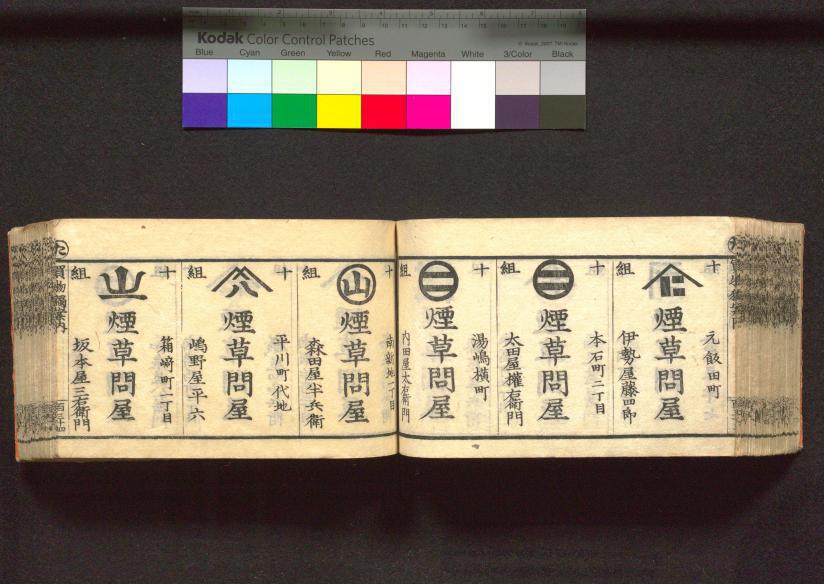 Kodak Color Control Patches
Blue Cyan Green Yellow Red Magenta White 3/Color Black
十組
元飯田町
煙草問屋
伊勢屋藤四郎
十組
本石町二丁目
煙草問屋
太田屋権右衛門
十組
湯嶋横町
煙草問屋
内田屋太右衛門
十組
南新地一丁目
山
煙草問屋
森田屋半兵衛
十組
平川町代地
煙草問屋
嶋野屋平六
十組
箱崎町一丁目
山
煙草問屋
坂本屋三右衛門
た
買物獨案内